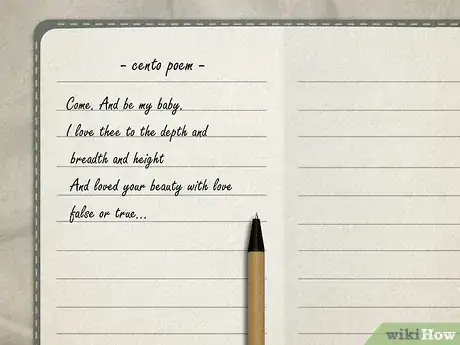 - cento poem -
Come. And be my baby.
I love thee to the depth and
breadth and height
And loved your beauty with love
false or true...
wikiHow